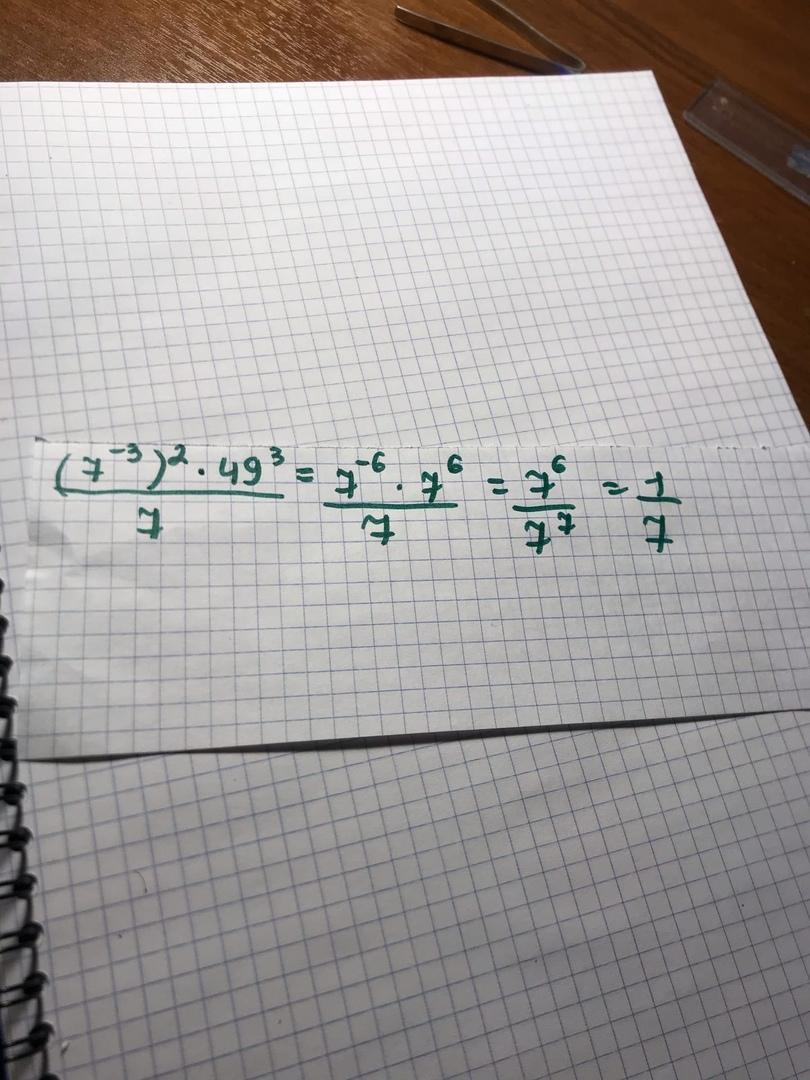 \frac{(7^{-3})^2 \cdot 49^3}{7} = \frac{7^{-6} \cdot 7^6}{7} = \frac{7^6}{7^7} = \frac{1}{7}